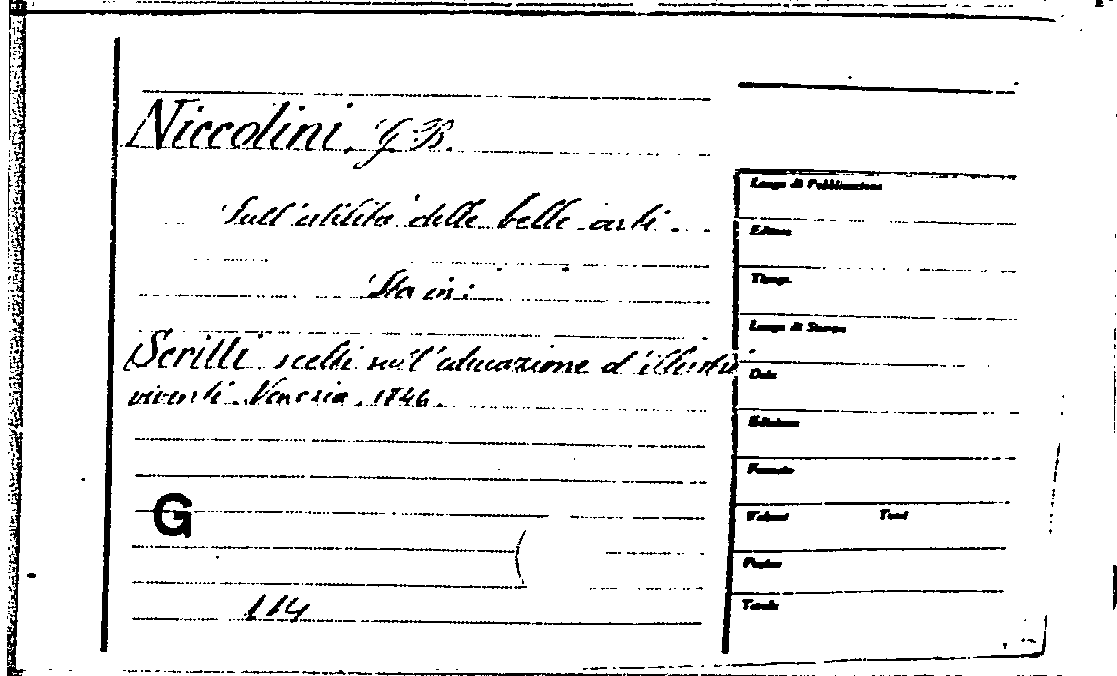 Niccolini, G. B.
Sull'utilità delle belle arti.
Sta in:
Scritti scelti sull'educazione d'illustri
viventi. Venezia. 1846.
G
114
Luogo di Pubblicazione
Editore
Tipogr.
Luogo di Stampa
Data
Edizione
Formato
Volumi Tomi
Pagine
Tavole